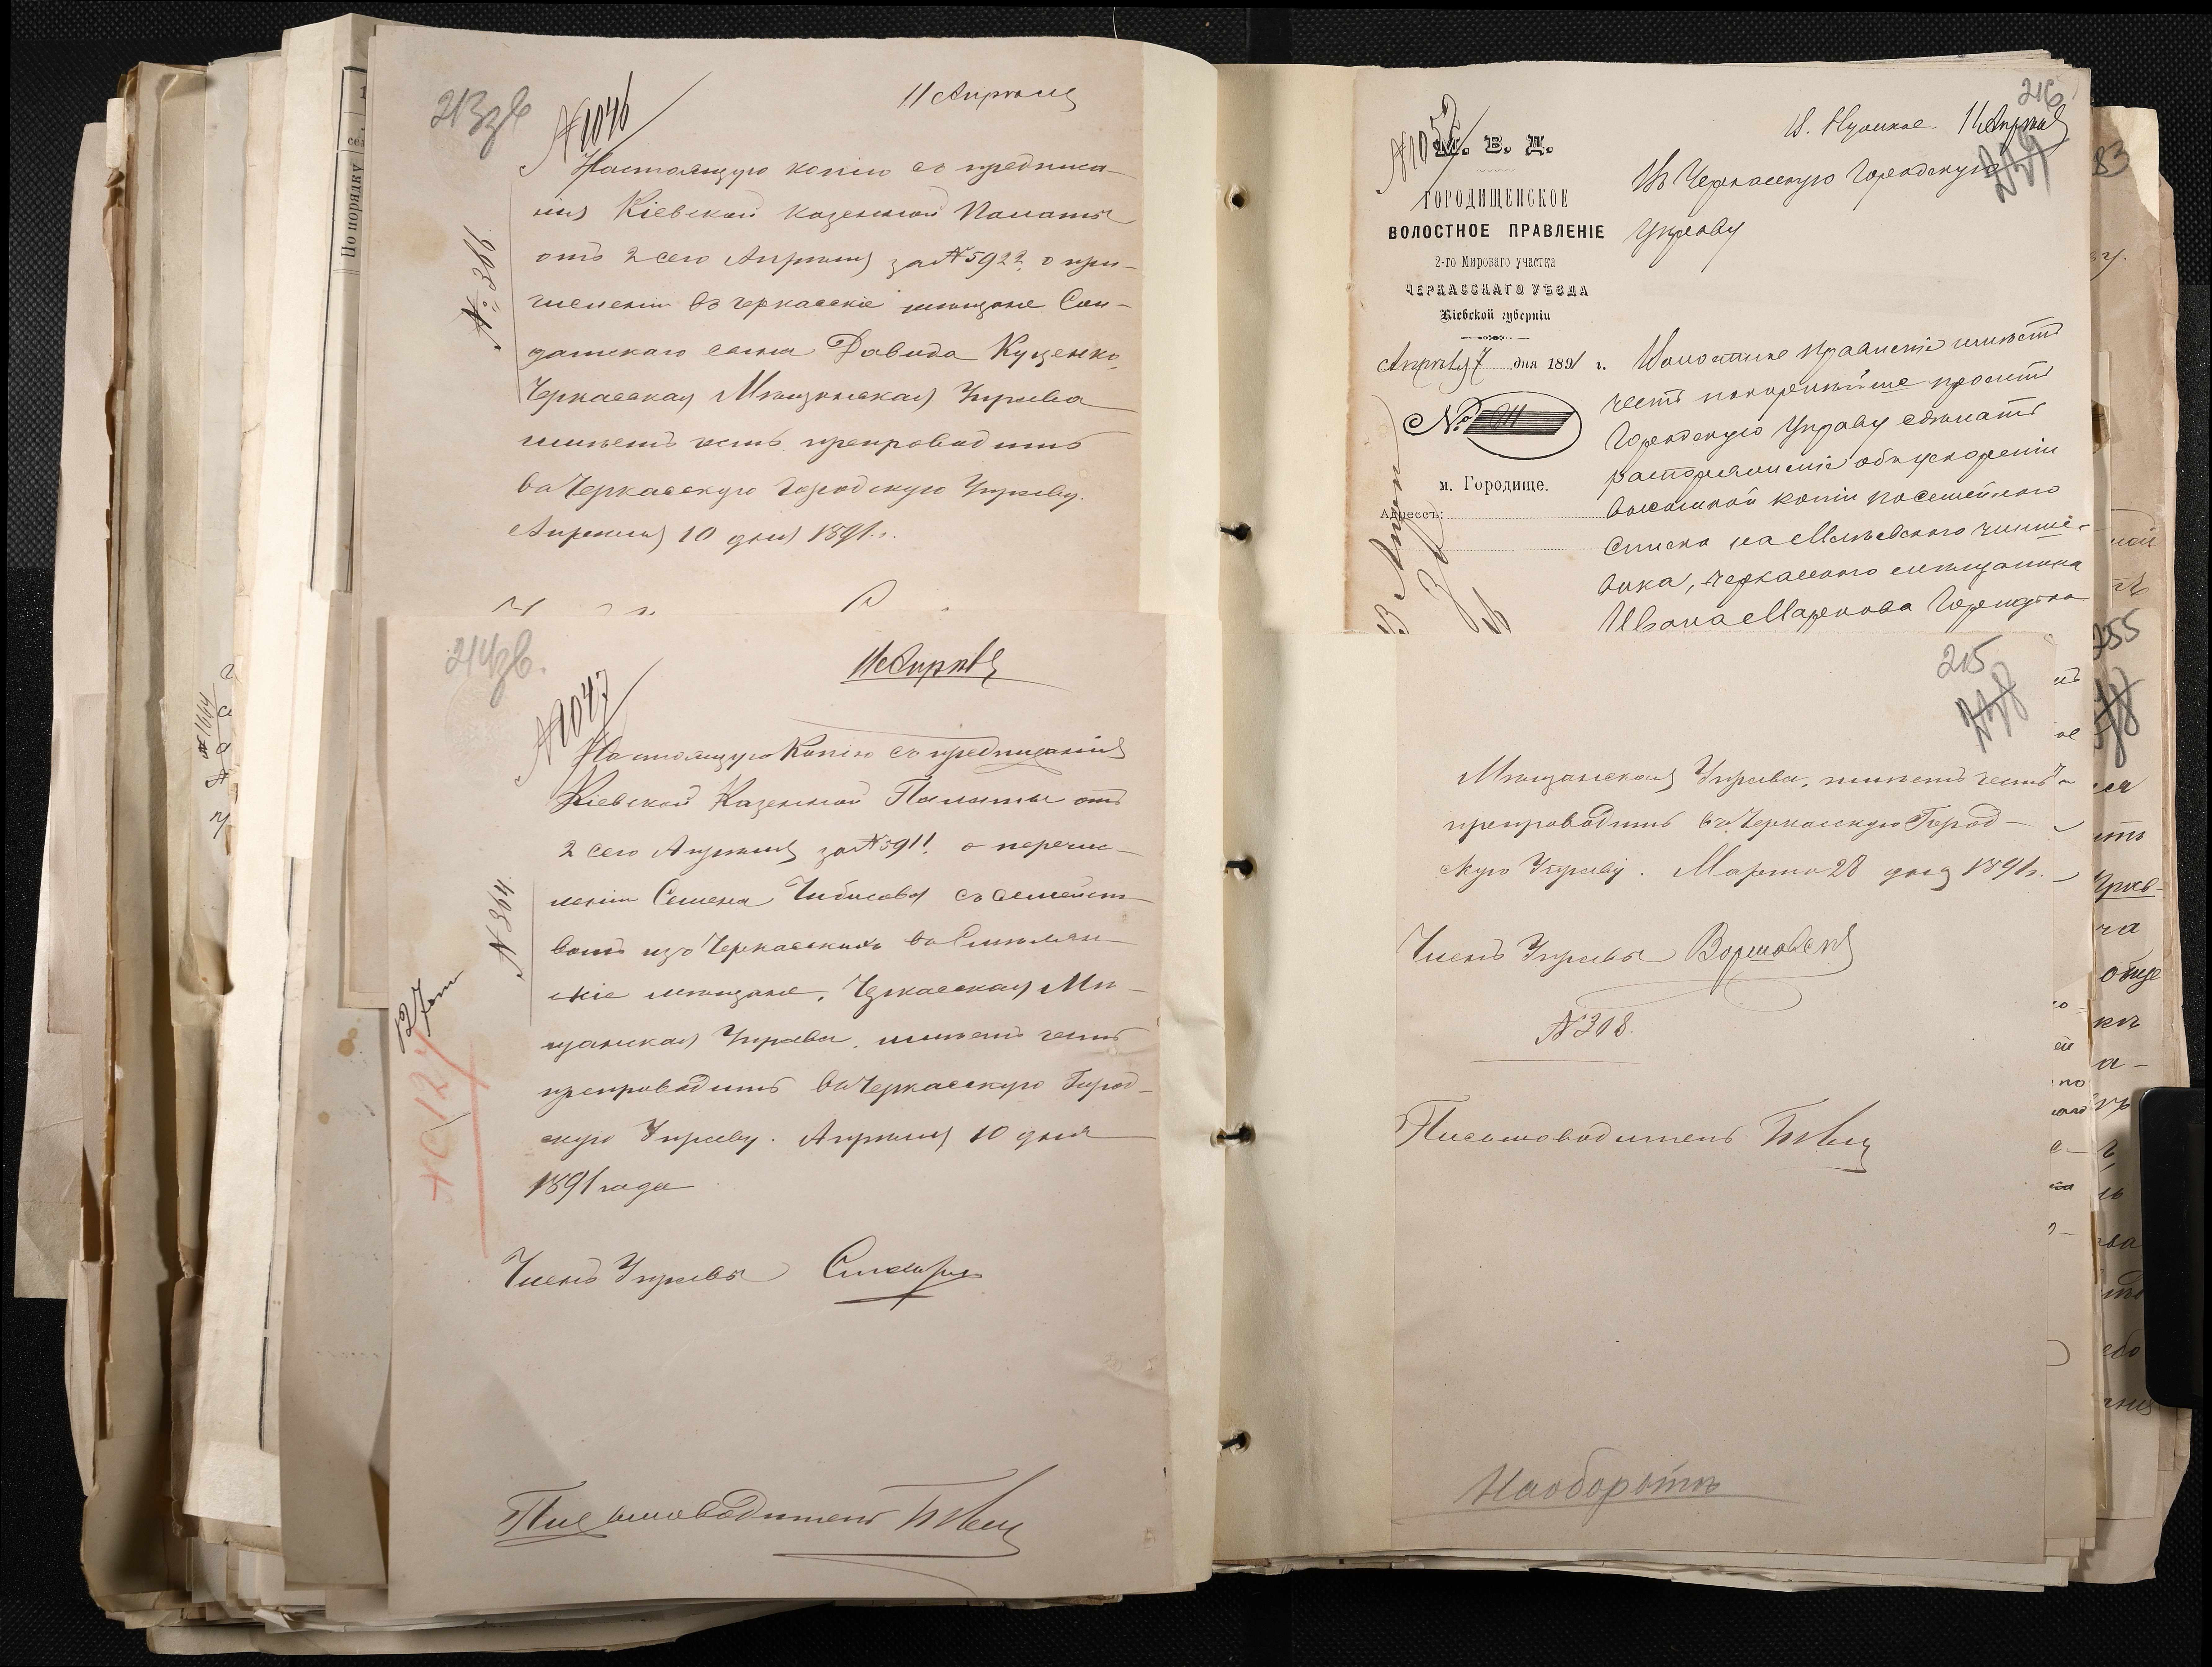 213зв
№1046
11 Апрѣля
№ 366
Настоящую копію съ предписа-
нія Кіевской Казенной Палаты
отъ 2 сего Апрѣля за №5922 о при-
численіи въ черкасскіе мѣщане Сол-
датскаго сына Давида Куценко,
Черкасская Мѣщанская Управа
имѣетъ честь препроводить
въ Черкасскую Городскую Управу.
Апрѣля 10 дня 1891 г.
214зв.
№1047
11 Апрѣля
№ 364
Настоящую Копію съ предписанія
Кіевской Казенной Палаты отъ
2 сего Апрѣля за №5911 о перечис-
леніи Семена Чибисова съ семейст-
вомъ изъ Черкасскихъ въ
скіе мѣщане, Черкасская Мѣ-
щанская Управа, имѣетъ честь
препроводить въ Черкасскую Город-
скую Управу. Апрѣля 10 дня
1891 года
Членъ Управы
Письмоводитель
216
№1052
11 Апрѣля
М. В. Д.
ГОРОДИЩЕНСКОЕ
ВОЛОСТНОЕ ПРАВЛЕНІЕ
2-го Мироваго участка
ЧЕРКАССКАГО УѢЗДА
Кіевской губерніи
Апрѣля 7 дня 1891 г.
№ 911
м. Городище.
Адрессъ:
Въ Черкасскую Городскую
Управу
Волостное Правленіе имѣетъ
честь покорнѣйше просить
Городскую Управу сдѣлать
распоряженіе объ ускореніи
высылкой копіи посемейнаго
списка на Мліевского чинше-
вика, черкасского мѣщанина
Ивана Маркова
215
Мѣщанская Управа, имѣетъ честь
препроводить въ Черкасскую Город-
скую Управу. Марта 28 дня 1891 г.
Членъ Управы
№308.
Письмоводитель
Наоборотъ